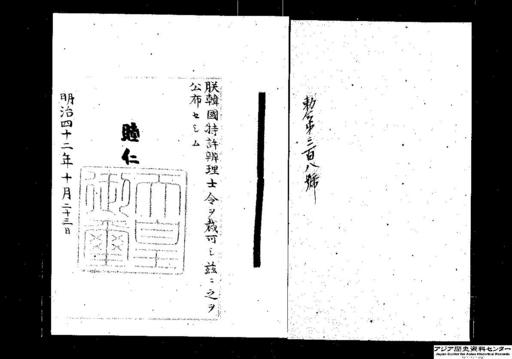 勅令第三百八號
朕韓國特許辨理士令ヲ裁可シ茲ニ之ヲ
公布セシム
睦仁
天皇御璽
明治四十二年十月二十三日
アジア歴史資料センター
Japan Center for Asian Historical Records